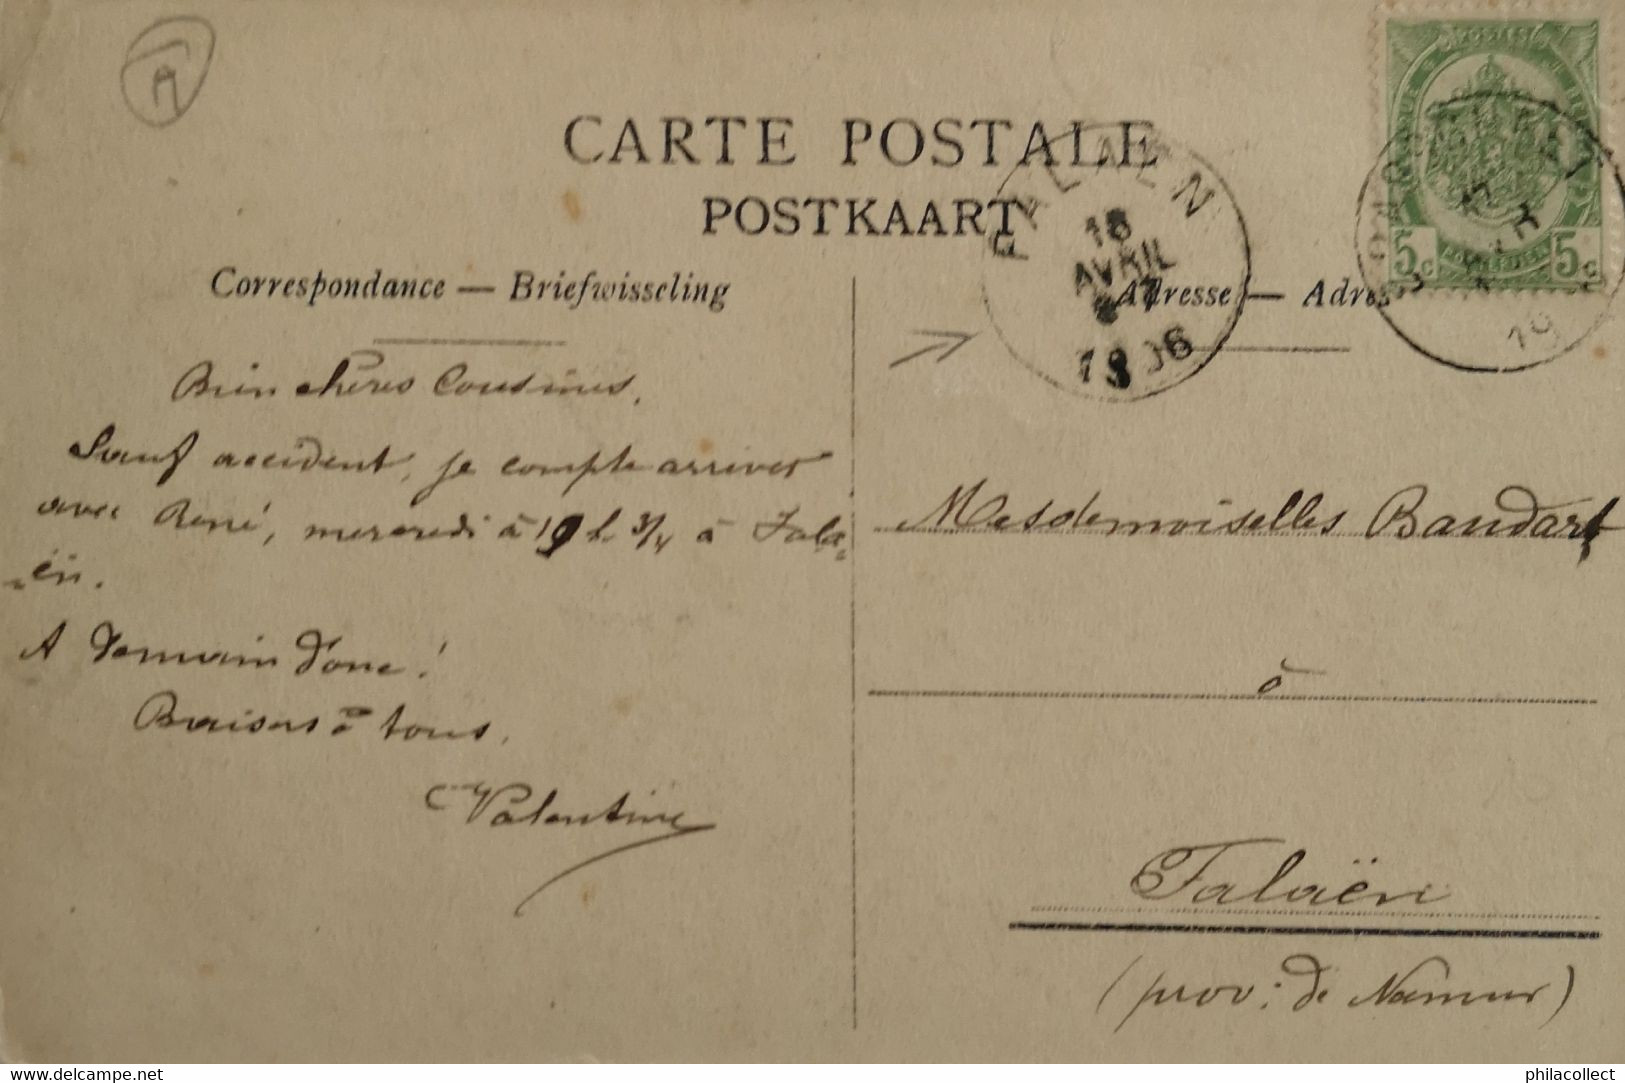 A
CARTE POSTALE
POSTKAART
FALAEN
18
AVRIL
1906
5c 5c
Correspondance — Briefwisseling
Adresse — Adres
Bien chères Cousines,
Sauf accident, je compte arriver
avec René, mercredi à 19 h. 3/4 à Fala-
-ën.
A demain donc!
Baisers à tous.
Valentine
Mesdemoiselles Baudart
à
Falaën
(prov: de Namur)
www.delcampe.net
philacollect